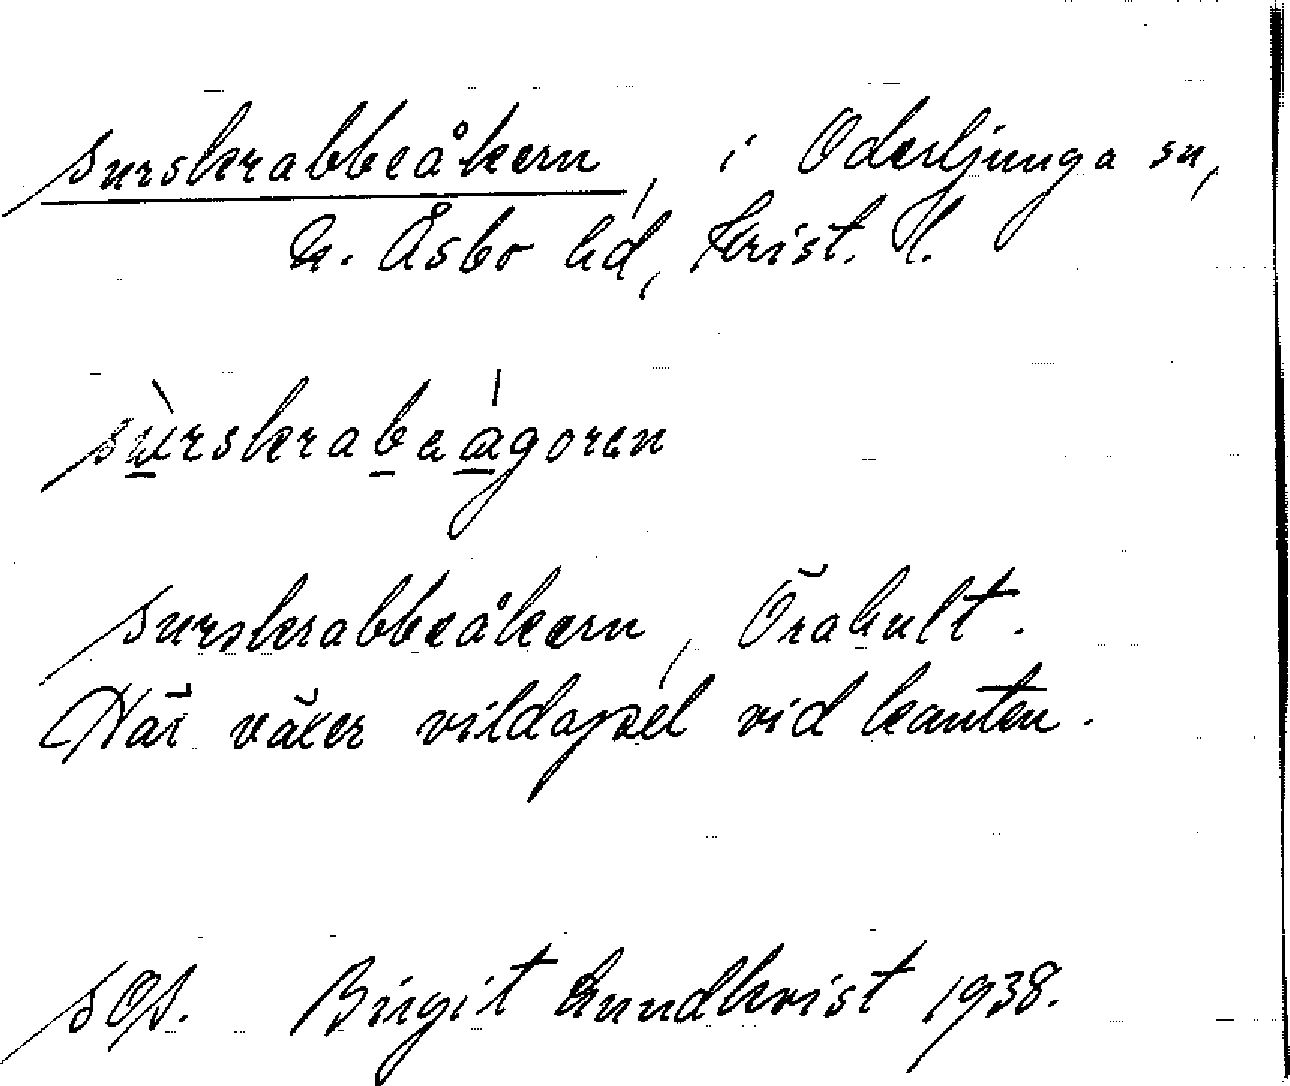 surskrabbeåkern, i Oderljunga sn,
N. Åsbo hd, Krist. l.
sùrskrabeágoren
surskrabbeåkern, Örahult.
Här växer vildapel vid kanten.
Birgit Lundkvist 1938.